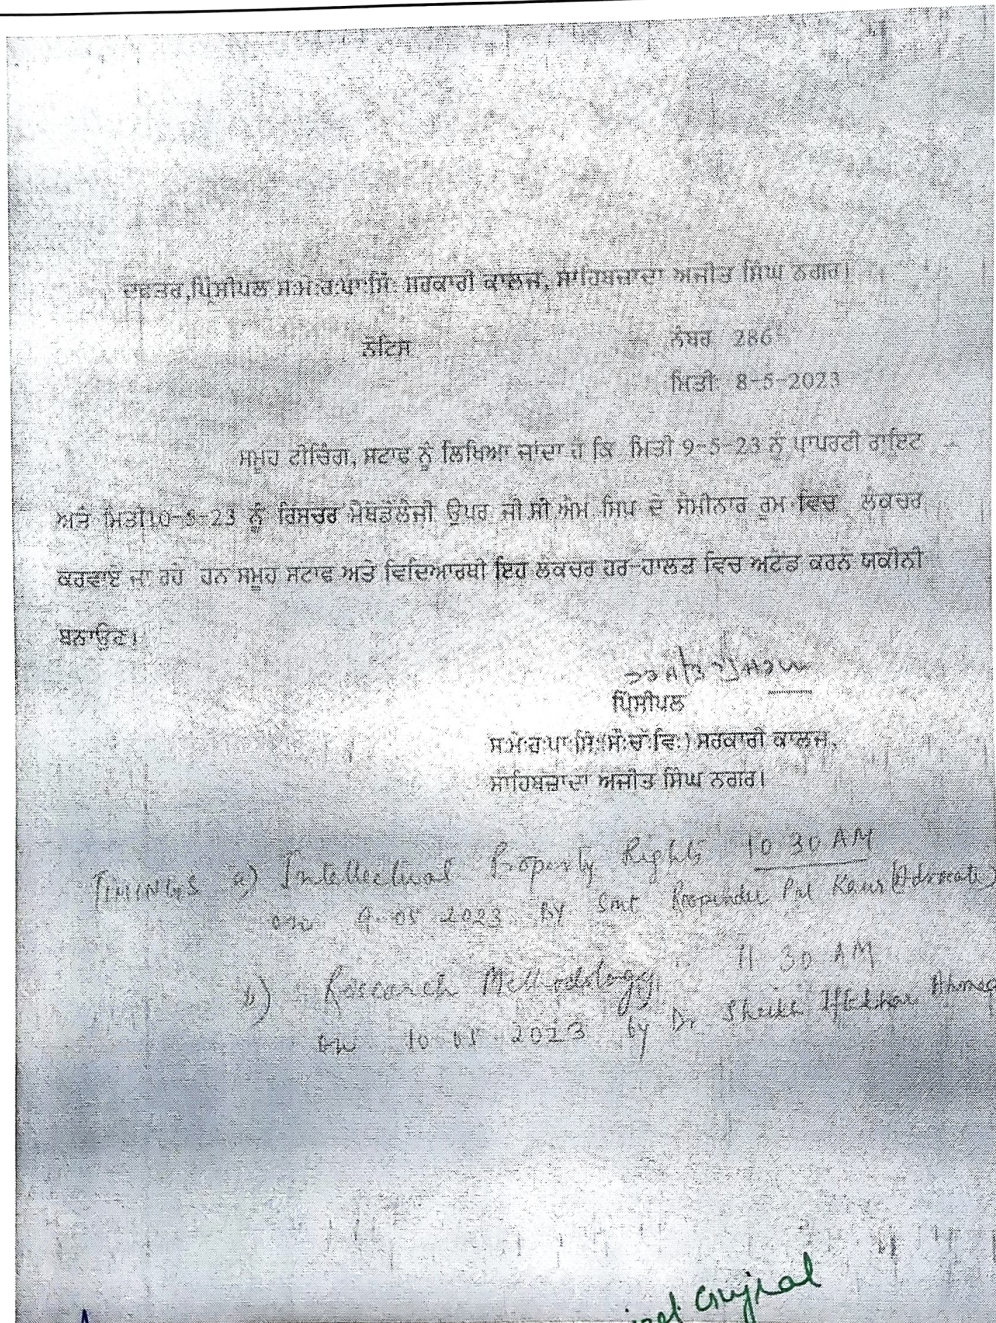 ਦਫਤਰ,ਪ੍ਰਿੰਸੀਪਲ ਸ:ਮ:ਰ:ਪਾ:ਸਿੰ: ਸਰਕਾਰੀ ਕਾਲਜ, ਸਾਹਿਬਜ਼ਾਦਾ ਅਜੀਤ ਸਿੰਘ ਨਗਰ।
ਨੋਟਿਸ
ਨੰਬਰ 286
ਮਿਤੀ: 8-5-2023
ਸਮੂਹ ਟੀਚਿੰਗ, ਸਟਾਫ ਨੂੰ ਲਿਖਿਆ ਜਾਂਦਾ ਹੈ ਕਿ ਮਿਤੀ 9-5-23 ਨੂੰ ਪ੍ਰਾਪਰਟੀ ਰਾਇਟ
ਅਤੇ ਮਿਤੀ10-5-23 ਨੂੰ ਰਿਸਚਰ ਮੈਥਡੋਲੋਜੀ ਉਪਰ ਜੀ.ਸੀ.ਐਮ.ਸਿਪ ਦੇ ਸੈਮੀਨਾਰ ਰੂਮ ਵਿਚ ਲੈਕਚਰ
ਕਰਵਾਏ ਜਾ ਰਹੇ ਹਨ ਸਮੂਹ ਸਟਾਫ ਅਤੇ ਵਿਦਿਆਰਥੀ ਇਹ ਲੈਕਚਰ ਹਰ-ਹਾਲਤ ਵਿਚ ਅਟੈਂਡ ਕਰਨ ਯਕੀਨੀ
ਬਨਾਉਣ।
ਪ੍ਰਿੰਸੀਪਲ
ਸ:ਮ:ਰ:ਪਾ:ਸਿੰ:(ਸੌ:ਚੱ:ਵਿ:) ਸਰਕਾਰੀ ਕਾਲਜ,
ਸਾਹਿਬਜ਼ਾਦਾ ਅਜੀਤ ਸਿੰਘ ਨਗਰ।
TIMINGS a) Intellectual Property Rights 10 30 AM
on 9-05 2023 By Smt Roopinder Pal Kaur (Advocate)
b) Research Methodology 11 30 AM
on 10 05 2023 by Dr Sheikh Iftekhar Ahmed
Gujral